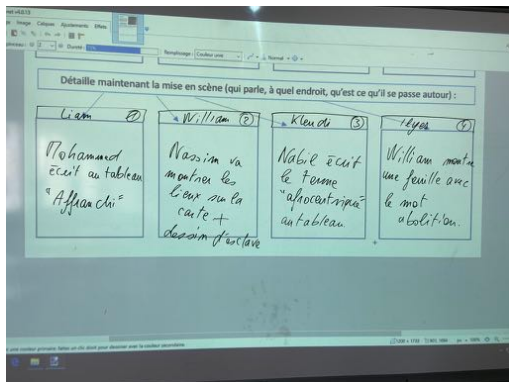 Image Calques Ajustements Effets
Remplissage : Couleur unie
Normal
Détaille maintenant la mise en scène (qui parle, à quel endroit, qu'est ce qu'il se passe autour) :
Liam 1
Mohammed
écrit au tableau
"Affranchi"
William 2
Nassim va
montrer les
lieux sur la
carte +
dessin d'esclave
Klendi 3
Nabil écrit
le terme
"afrocentrique"
au tableau.
Ilyes 4
William montre
une feuille avec
le mot
abolition.